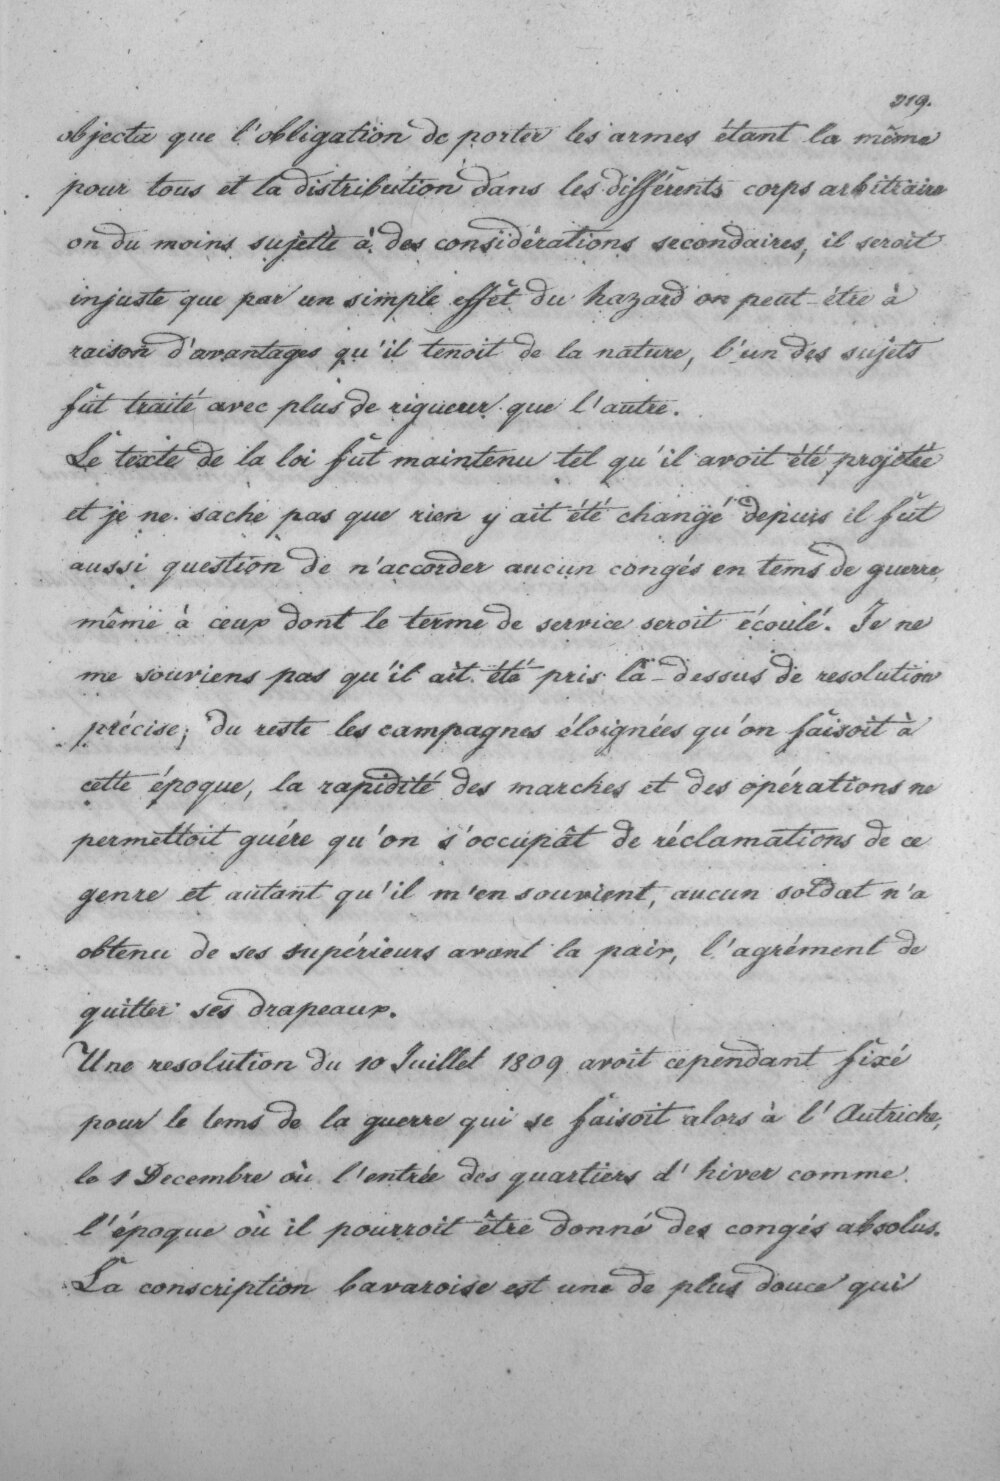 319.
objecta que l'obligation de porter les armes étant la même
pour tous et la distribution dans les différents corps arbitraire
on du moins sujette à des considérations secondaires, il seroit
injuste que par un simple effêt du hazard on peut-être à
raison d'avantages qu'il tenoit de la nature, l'un des sujets
fût traité avec plus de riguerer que l'autre.
Le texte de la loi fût maintenu tel qu'il avoit été projetée
et je ne sache pas que rien y ait été changé depuis il fût
aussi question de n'accorder aucun congés en tems de guerre,
même à ceux dont le terme de service seroit écoulé. Je ne
me souviens pas qu'il ait été pris là-dessus de resolution
précise; du reste les campagnes éloignées qu'on faisoit à
cette époque, la rapidité des marches et des opérations ne
permettoit guére qu'on s'occupât de réclamations de ce
genre et autant qu'il m'en souvient, aucun soldat n'a
obtenu de ses supérieurs avant la paix, l'agrément de
quitter ses drapeaux.
Une resolution du 10 Juillet 1809 avoit cependant fixé
pour le tems de la guerre qui se faisoit alors à l'Autriche,
le 1 Decembre où l'entrée des quartiers d'hiver comme
l'époque où il pourroit être donné des congés absolus.
La conscription bavaroise est une de plus douce qui